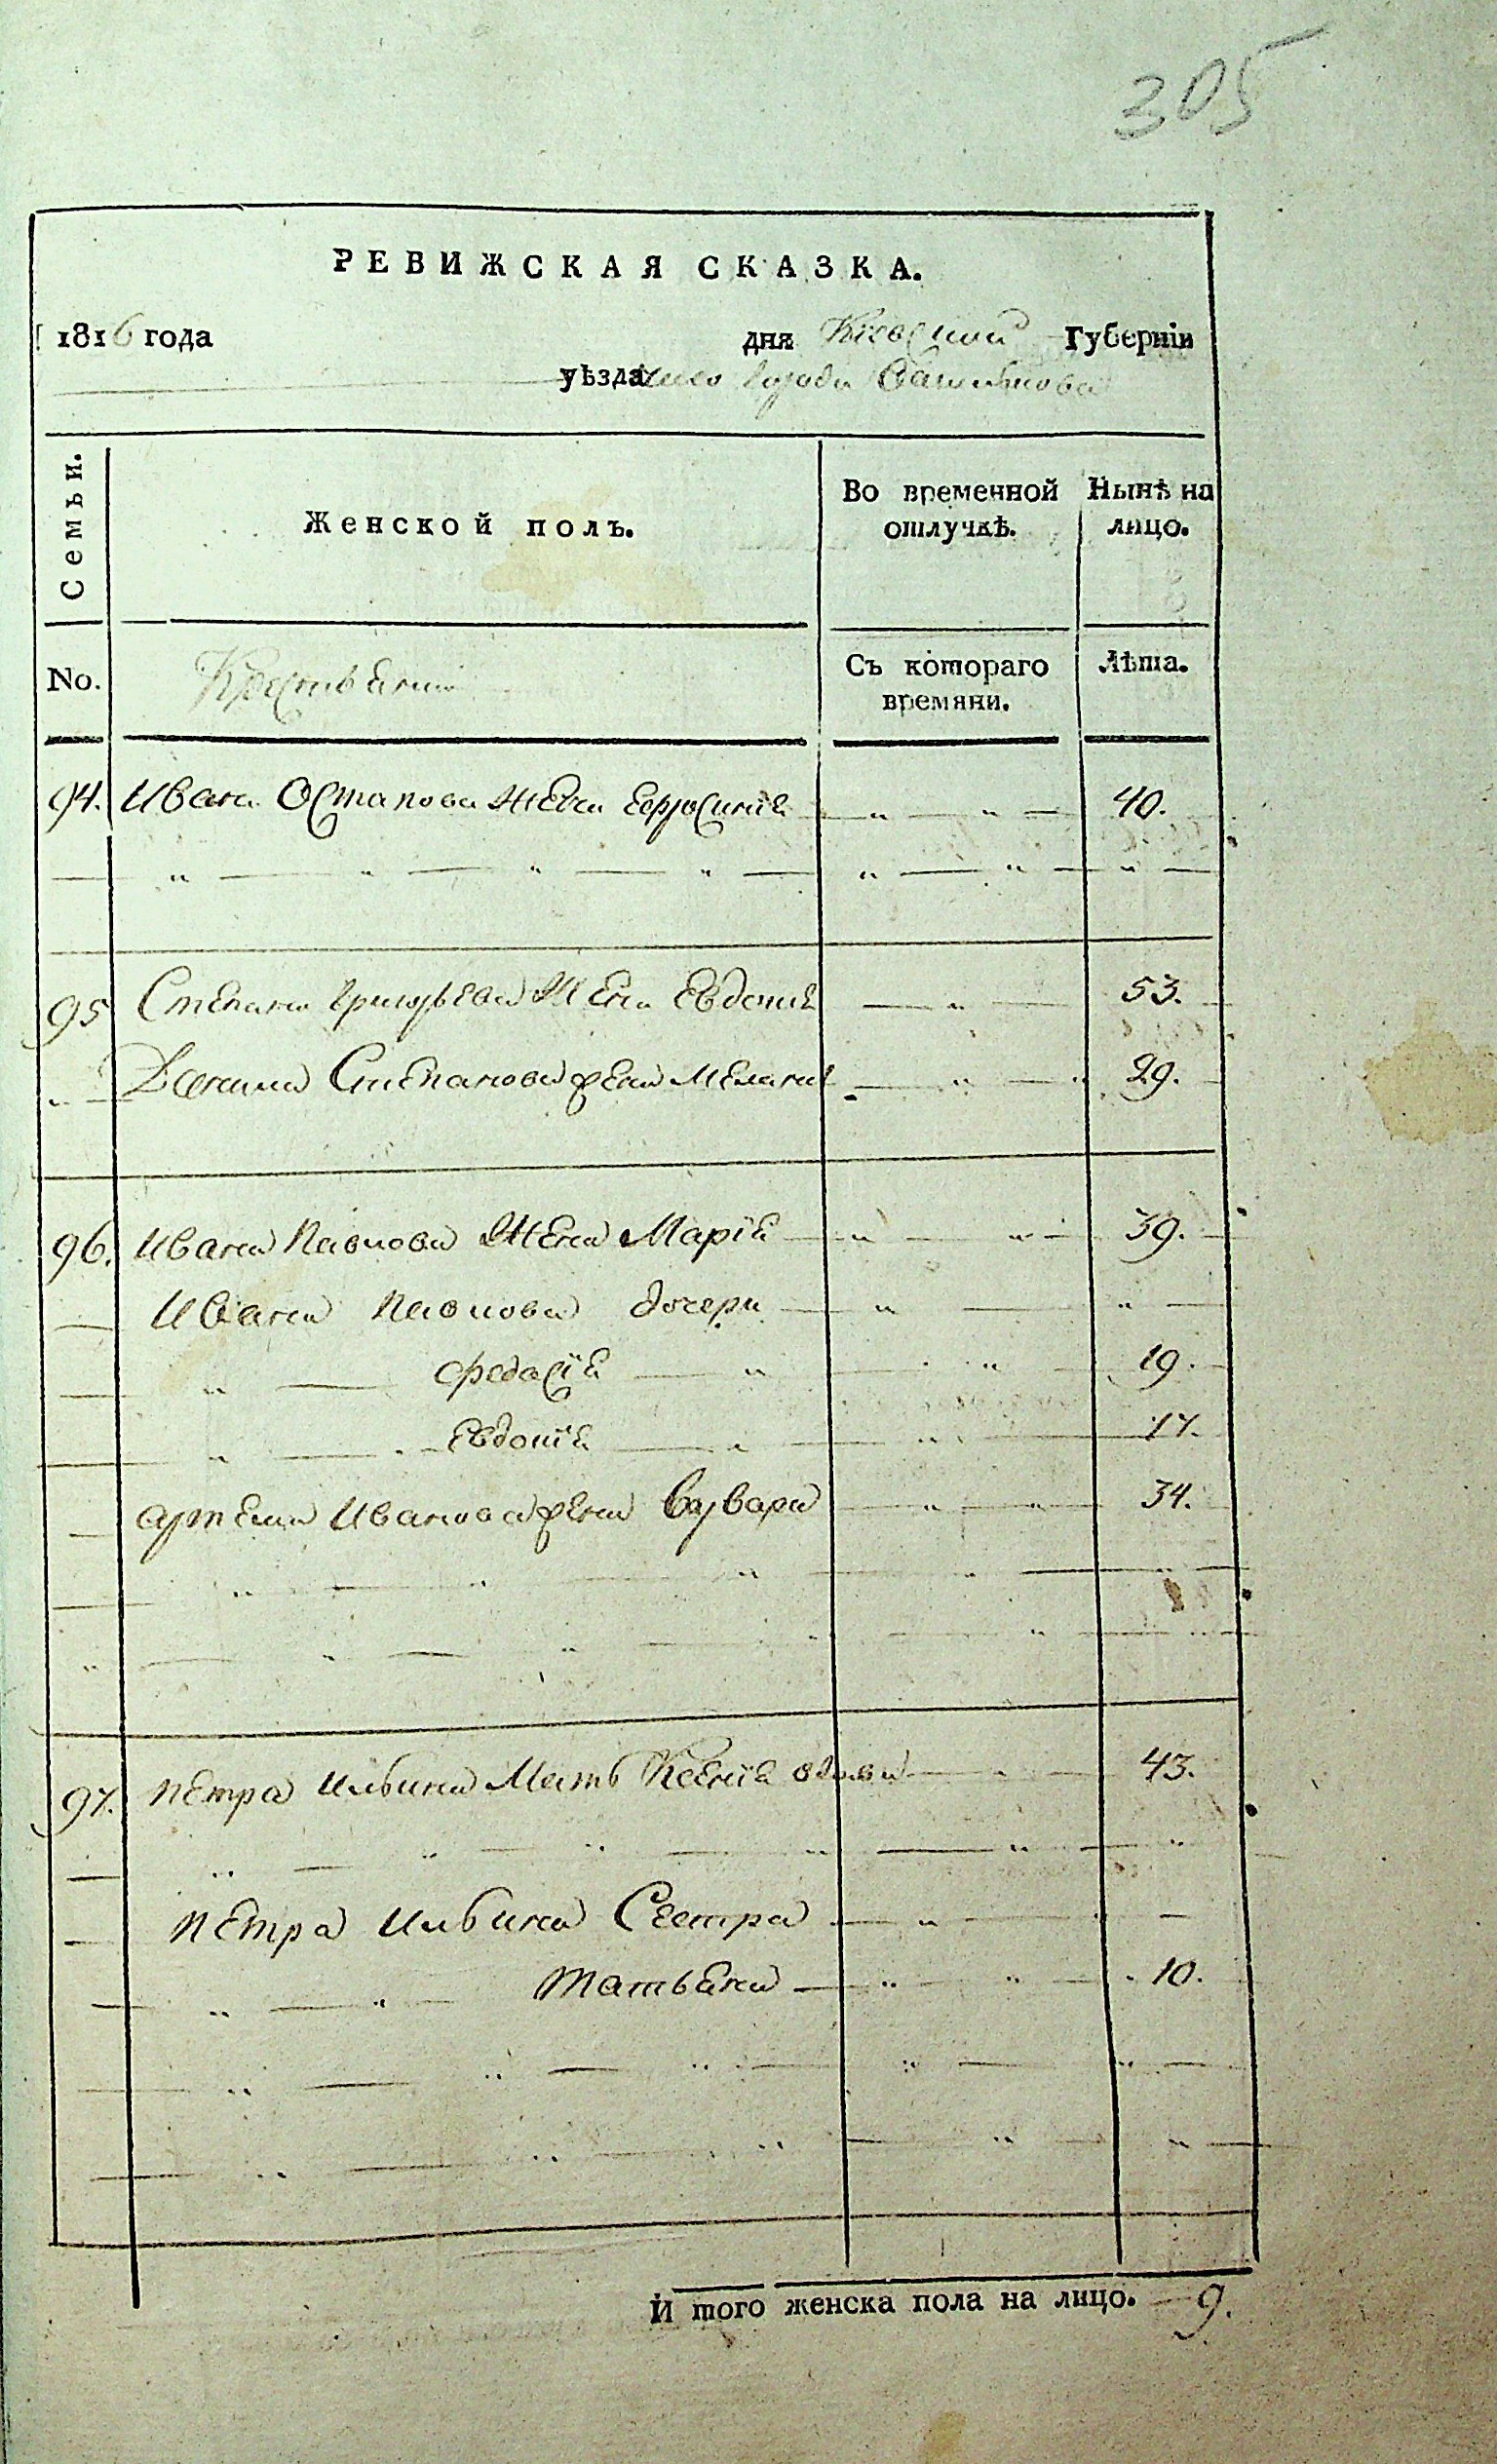 305
РЕВИЖСКАЯ СКАЗКА.
1816 года дня Кіевской Губерніи
уѣзда города
Семьи.
Женской полъ.
Во временной отлучкѣ.
Нынѣ на лицо.
No.
Крестьяне
Съ котораго времяни.
Лѣта.
94. Ивана Остапова жена Ефросиніа 40.
95 Степана Григорьева жена Евдокиа 53.
Степанова жена Мелания 29.
96. Ивана Павлова жена Маріа 39.
Ивана Павлова дочери
Федосіа 19.
Евдокіа 17.
Артема Иванова жена Варвара 34.
97. Петра Ильина мать Ксеніа вдова 43.
Петра Ильина Сестра —
Татьяна 10.
И того женска пола на лицо. 9.